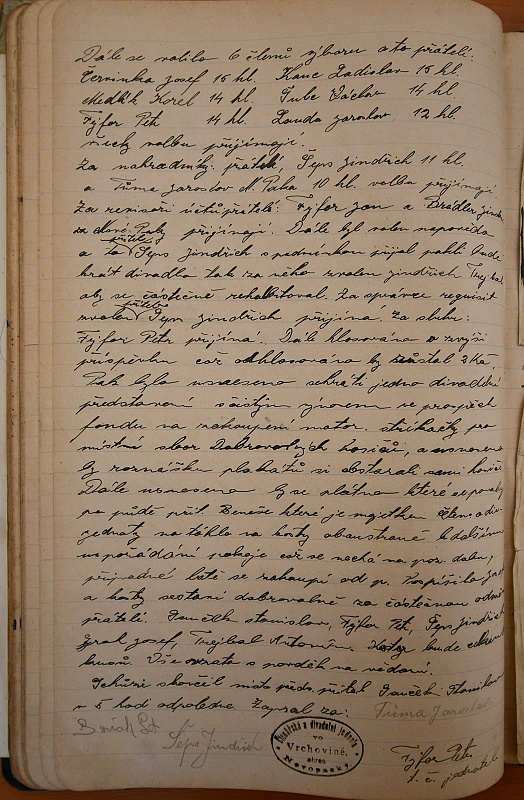 Dále se volilo 6 členů výboru a to přátelé:
Červinka Josef 15 hl. Kauc Ladislav 15 hl.
Medlík Karel 14 hl. Šubr Václav 14 hl.
Fýfar Petr 14 hl. Louda Jaroslav 12 hl.
všichni volbu přijímají.
Za náhradníky: přátelé, Šeps Jindřich 11 hl.
a Tůma Jaroslav N. Paka 10 hl. volbu přijímají
Za revisory účtů přátelé: Fýfar Jan a Brádler
za Nové Paky přijímají. Dále byl volen napověda
a to přítel Šeps Jindřich s podmínkou přijal pakli bude
hrát divadlo tak za něho zvolen Jindřich
aby se částečně rehabilitoval. Za správce requisit
zvolen přítel Šeps Jindřich přijímá. Za sluhu:
Fýfar Petr přijímá. Dále hlasováno o výši
příspěvku což odhlasováno by zůstal 2 Kč.
Pak bylo usneseno sehráti jedno divadelní
představení s čistým výnosem ve prospěch
fondu na zakoupení motor. stříkačky pro
místní sbor Dobrovolných hasičů, a usneseno
by roznášku plakátů si obstarali sami hasiči
Dále usneseno by se plátna které se
po půdě přít. Beneše které je majetkem
jednoty natáhlo na laty oboustraně k dalšímu
uspořádání pokoje což se nechá na poz. dobu,
případně latě se zakoupí od p. Kopíšila
a laty sestaví dobrovolně za částečnou
přátelé. Janeček Stanislav, Fýfar Petr, Šeps Jindřich
Josef, Trejbal Antonín. bude
Vše vzato s povděk na vědomí.
Schůzi skončil místopředs. přítel Janeček Stanislav
v 5 hod odpoledne. Zapsal za: Tůma Jaroslav
Petr
Šeps Jindřich
Čtenářská a divadelní jednota
ve
Vrchovině,
okres
Novopacký.
Fýfar Petr
t. č. jednatel